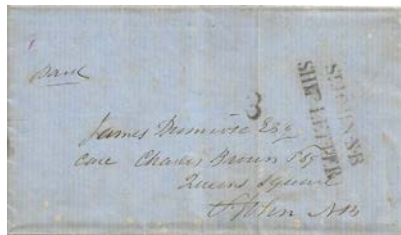 ST. JOHN N.B
SHIP LETTER
8
James Dunmore Esq
care Charles Brown Esq
Queens Square
St John NB